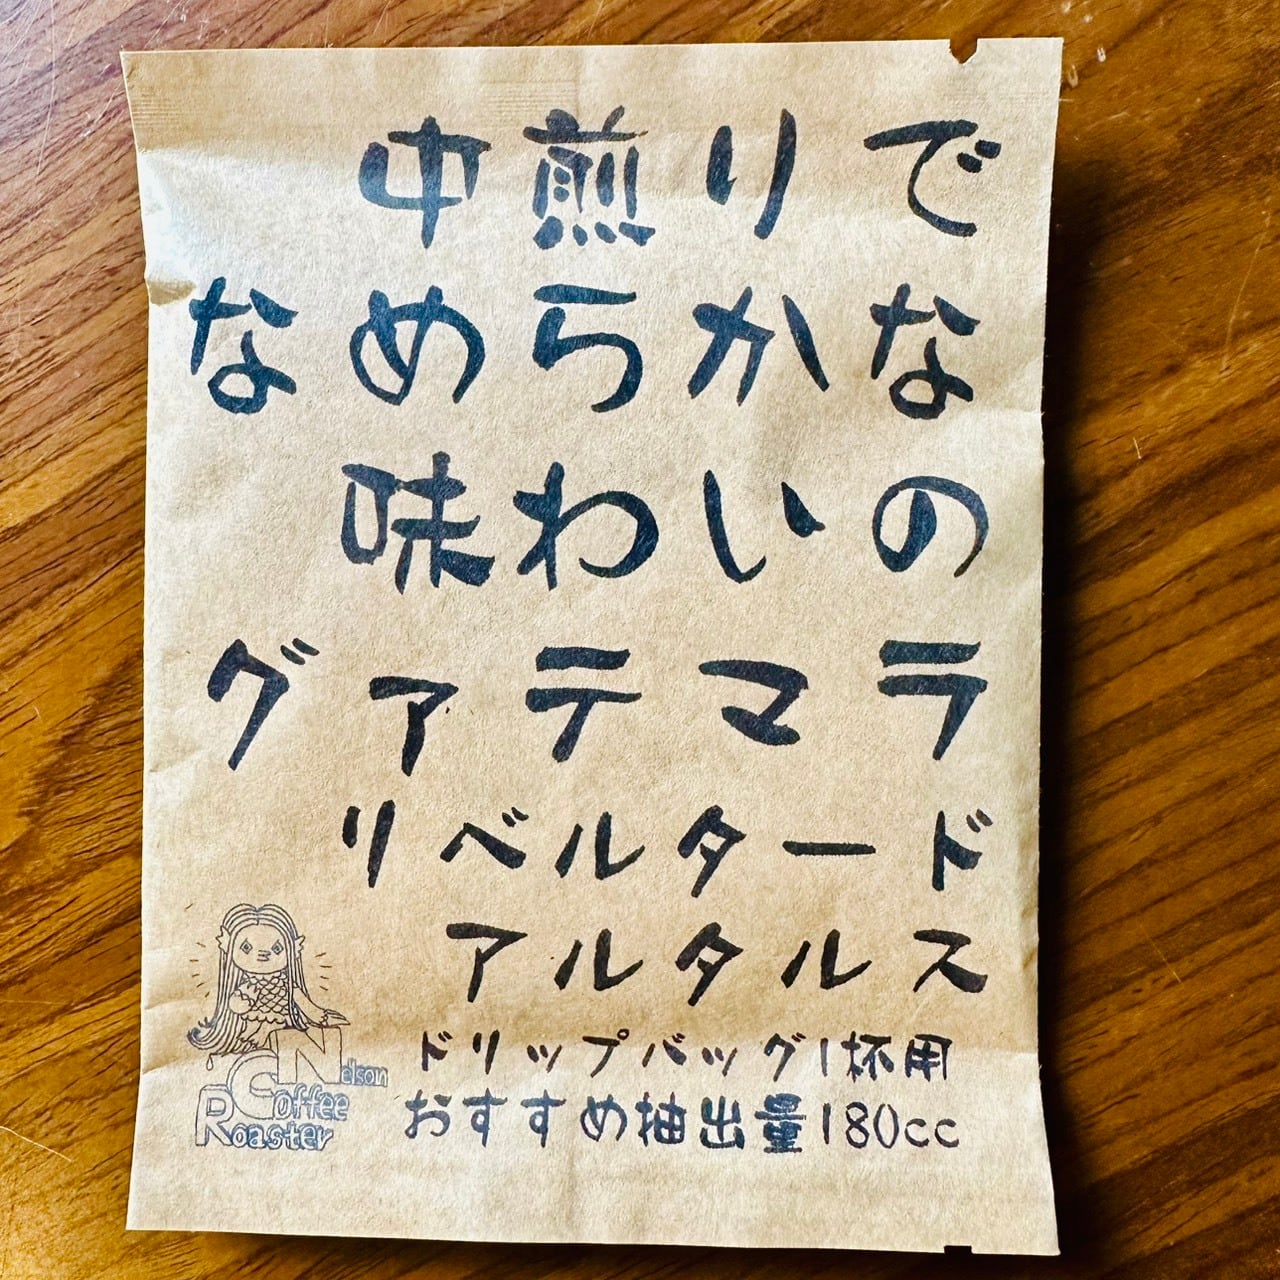 中煎りで
なめらかな
味わいの
グァテマラ
リベルタード
アルタルス
ドリップバッグ1杯用
おすすめ抽出量180cc
Nelson
Coffee
Roaster